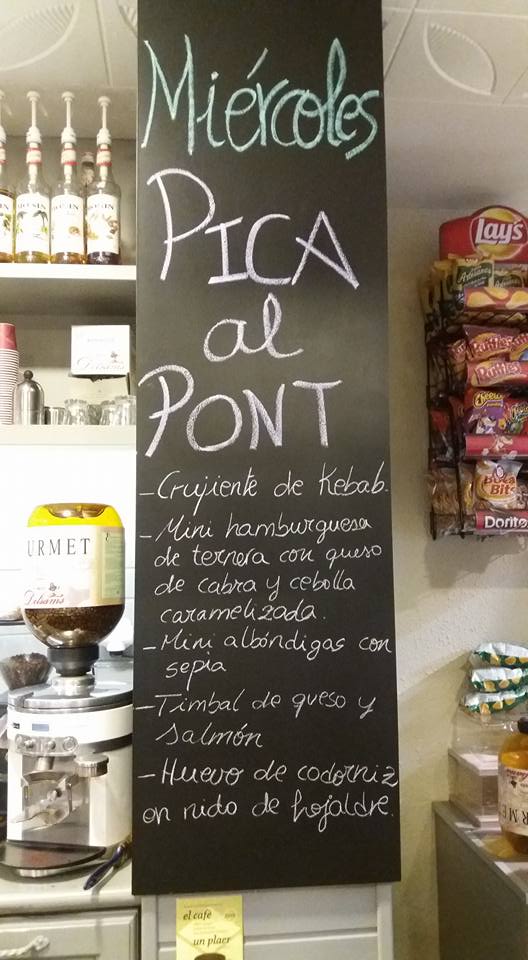 Miércoles
PICA
al
PONT
- Crujiente de Kebab.
- Mini hamburguesa
de ternera con queso
de cabra y cebolla
caramelizada.
- Mini albóndigas con
sepia
- Timbal de queso y
salmón
- Huevo de codorniz
en nido de hojaldre.
Lay's
Artesanas
Ruffles
Ruffles
Cheetos
Bits
Doritos
URMET
Delsams
Delsams
el cafè
un plaer